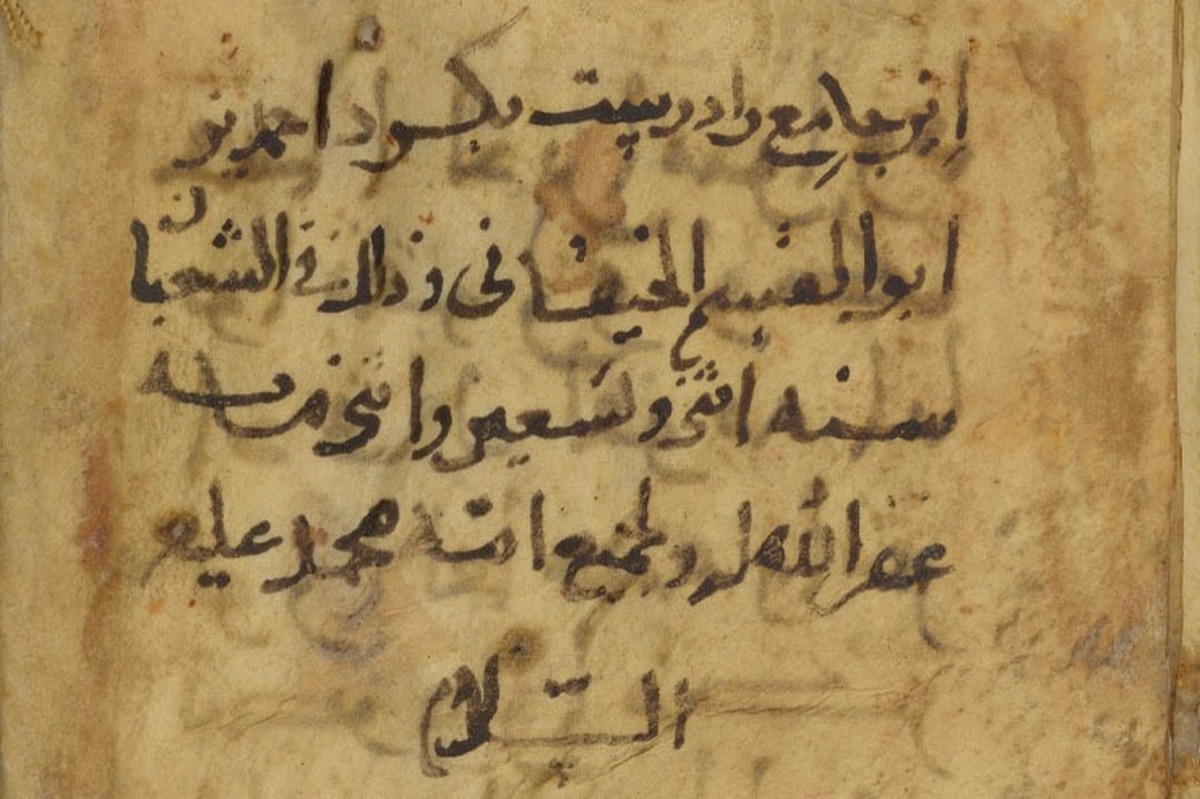 این جامع را درست بکرد احمد بن
ابو القسم الخیقانی و ذلك فی الشعبان
سنه اثنی و تسعین و اثنی مایه
غفر الله له و لجمیع امة محمد علیه
السلام